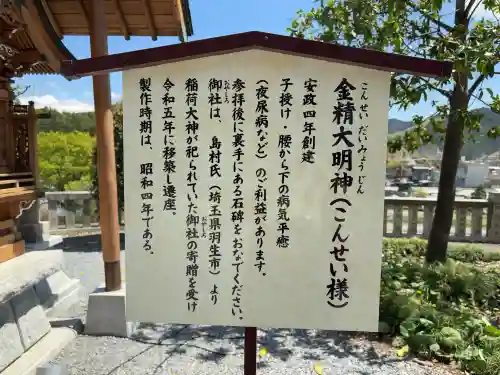 金精大明神（こんせい様）
こんせいだいみょうじん
安政四年創建
子授け・腰から下の病気平癒
（夜尿病など）のご利益があります。
参拝後に裏手にある石碑をおなでください。
おやしろ
御社は、島村氏（埼玉県羽生市）より
稲荷大神が祀られていた御社の寄贈を受け
おやしろ
令和五年に移築・遷座。
製作時期は、昭和四年である。